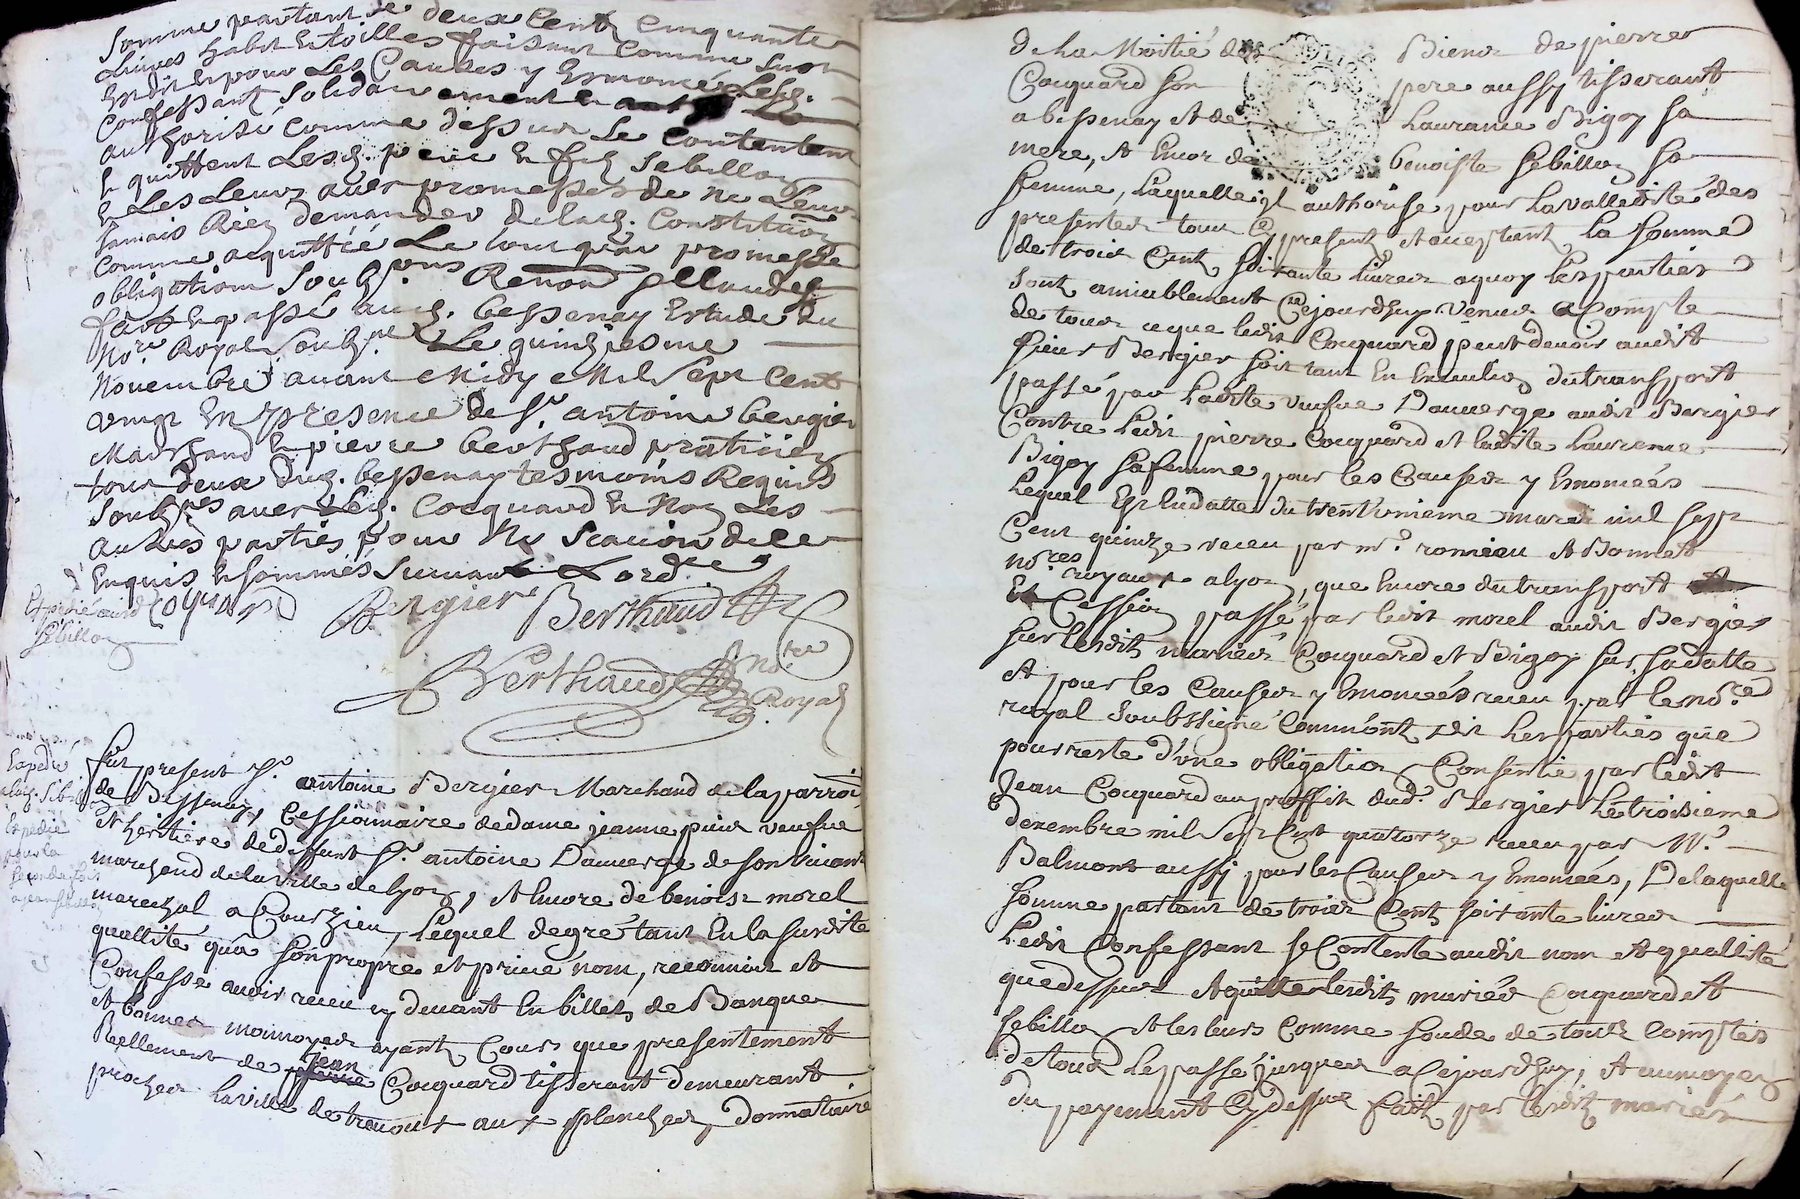 somme partant de deux Cents Cinquante
Livres habit Et toilles faisant comme sus
Est dit Et pour Les Causes y Enoncé Lesd.
Confessant Solidairement Et
authorisé comme dessus Se Contentent
Et quittent Lesd. pere Et fils Sebillon
Et Les Leurs avec promesses de Ne Leur
Jamais Rien demander de lad. Constitution
Comme acquittée Le tout par promesse
obligations Soubs.ons Renon.
fait Et passé aud. bessenay Estude du
No.re Royal Soubs.né Le quinziesme
Novembre avant Midy Mil Sept Cent
vingt En presence de S.r antoine bergier
Marchand Et pierre berthaud praticien
tous deux dud. bessenay tesmoins Requis
Soubs.nes avec Led. Cocquard Et Non Les
autres parties pour Ne Scavoir de ce
Enquis Et sommés Suivant L'ord.ce
Expedié aud.
Sebillon
Coquard
Bergier Berthaud
Berthaud no.re
Royal
Expedié
a lad. Sibil
Expedié
pour la
seconde fois
a jean Sibillon
Fut present S.r antoine Bergier Marchand de la parroi
de Bessenay, Cessionnaire de dame jeanne pieur veufve
Et heritiere de deffunt S.r antoine Dauverge de son vivant
marchand de la ville de lyon, Et Encore de benoist morel
marechal a Courzieu, Lequel de gré tant En la susdite
quallité qu'a son propre et privé nom, reconnoit et
Confesse avoir receu cy devant En billets de Banque
Et bonnes monnoyes ayant Cours que presentement
Reellement de jean Cocquard tisserant demeurant
proches la ville de trevoux aux planches, Donnataire
de La Moitié des Biens de pierre
Cocquard son pere aussy tisserant
a bessenay Et de Laurance Bigoy sa
mere, Et Encor de benoiste Sebillon sa
femme, Laquelle il authorise pour La vallidité des
presentes tous present Et acceptant, La somme
de trois Cents soixante livres a quoy Les parties
sont amiablement Cejourdhuy venues a Compte
de tous ce que ledit Cocquard peut devoir audit
sieur Bergier soit tant En Execution du transport
passé par Ladite veufve Dauverge audit Bergier
Contre Ledit pierre Cocquard et ladite Laurence
Bigoy sa femme pour les Causes y Enoncées
Lequel Est En datte du trent'unieme mars mil sept
Cent quinze receu par m.e romieu Et Bonnet
no.res royaux a lyon, que Encore du transport
Et Cession passé par ledit morel audit Bergier
sur lesdits mariés Cocquard et Bigoy sus sa datte
Et pour les Causes y Enoncées receu par le no.re
royal Soubssigné Comme ont dit Les parties que
pour reste d'une obligation Consentie par ledit
Jean Cocquard au proffit dud. Bergier Le troisieme
decembre mil sept Cent quatorze receu par M.e
Balmont aussy pour les Causes y Enoncées, De laquelle
somme partant de trois Cents soixante livres
Ledit Confessant se Contente audit nom Et quallité
que dessus Et quitte lesdits mariés Cocquard Et
Sebillon Et les leurs Comme soude de tous Comptes
de tous Le passé jusques a Cejourdhuy, Et au moyen
du payement Cy dessus fait par lesdits mariés